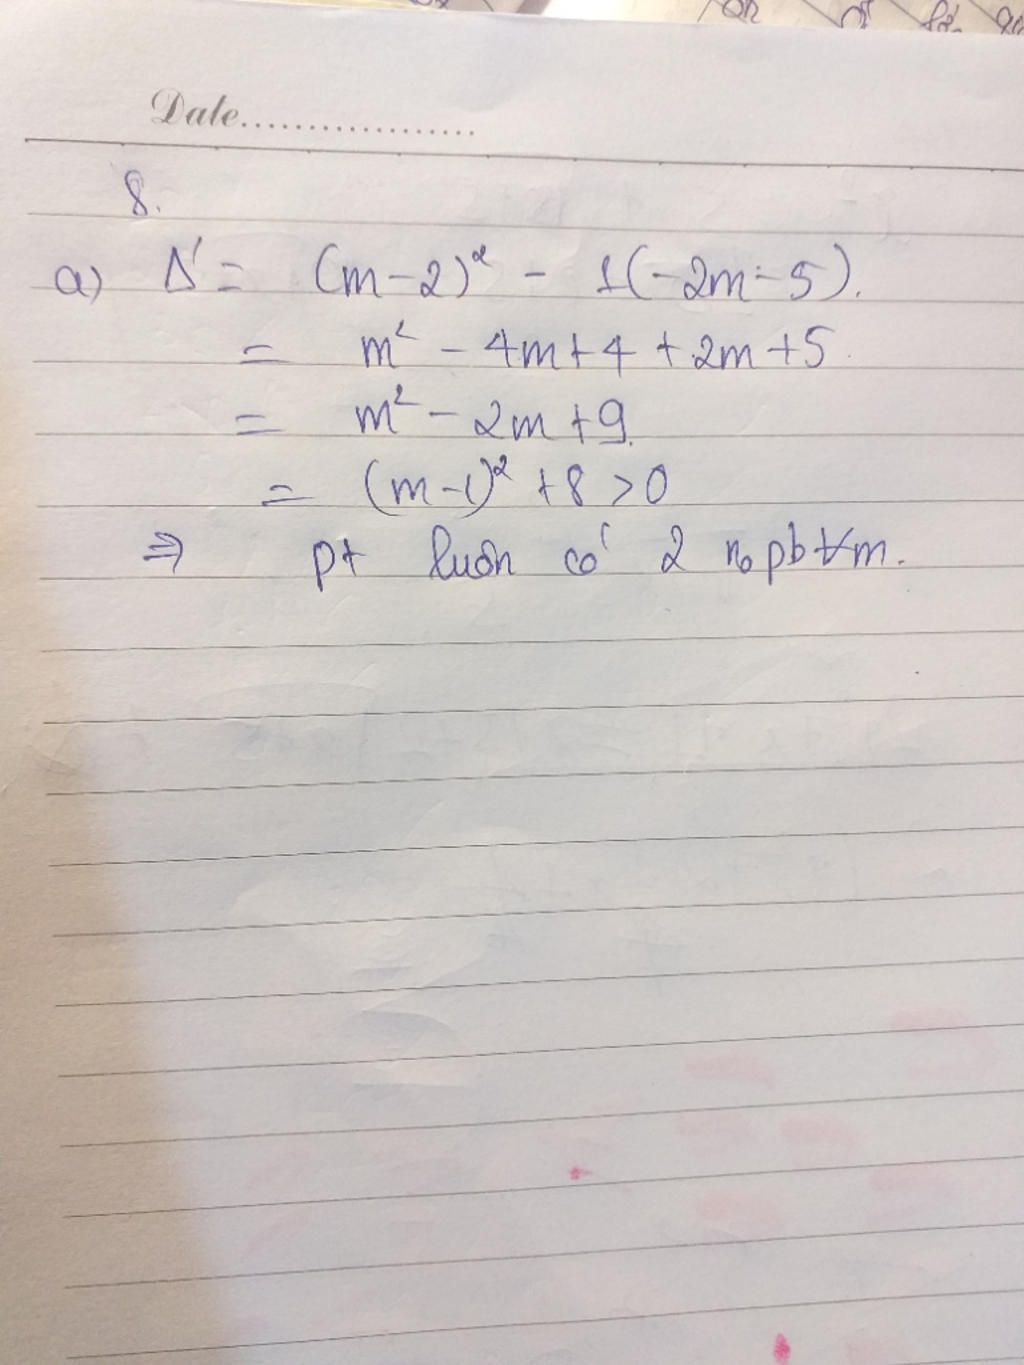 Date..................
8.
a) Δ' = (m-2)² - 1(-2m-5).
= m² - 4m + 4 + 2m + 5
= m² - 2m + 9.
= (m-1)² + 8 > 0
⇒ pt luôn có 2 no pb ∀m.